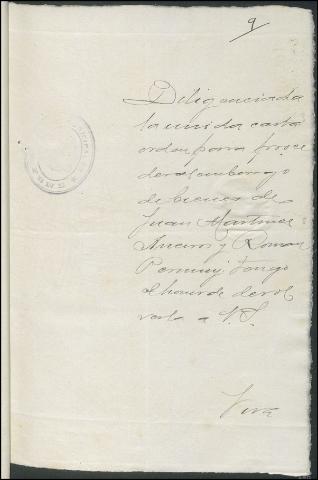 9
Diligenciada
la unida carta
orden para proce
der al embargo
de bienes de
Juan Martinez
Aneiros y Roman
Permuy, tengo
el honor de devol
verla a V.S.